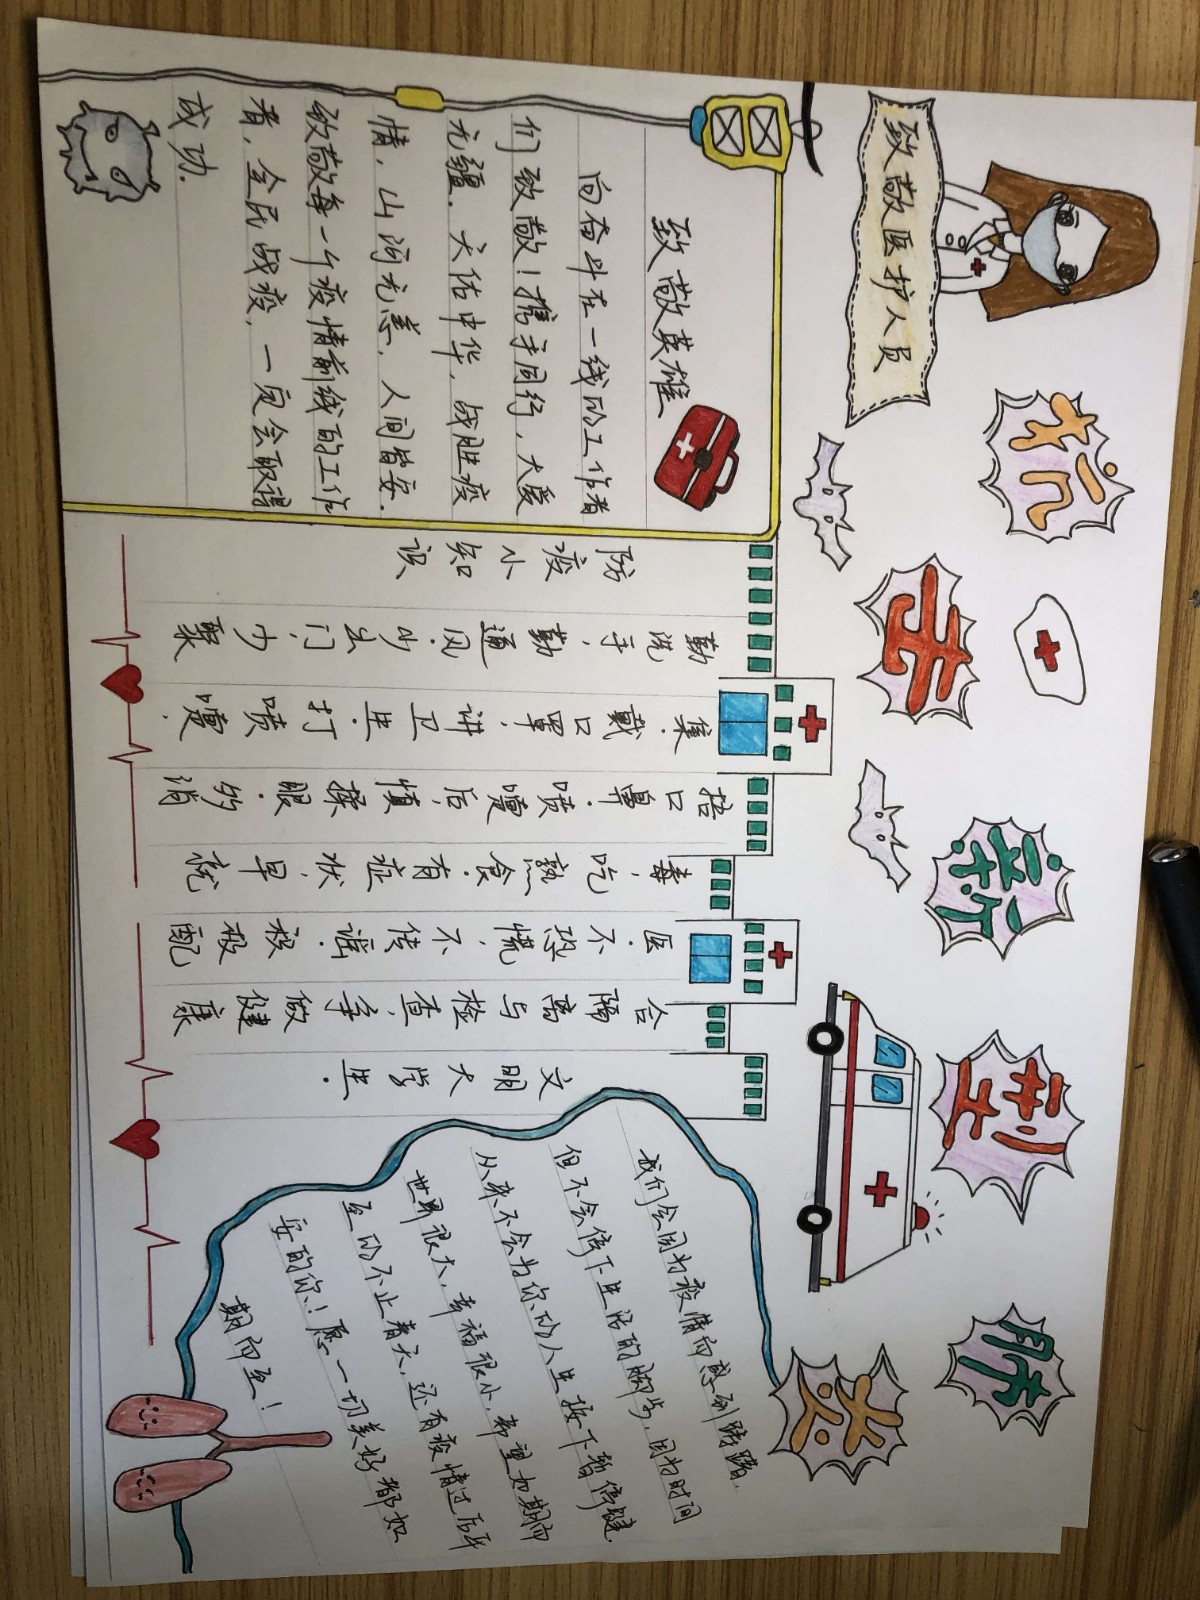 抗击新型肺炎
致敬医护人员
致敬英雄
向奋斗在一线的工作者
们致敬！携手同行，大爱
无疆。天佑中华，战胜疫
情，山河无恙，人间皆安.
致敬每一个疫情前线的工作
者，全民战疫，一定会取得
成功.
防疫小知识
勤洗手，勤通风.少出门，少聚
集.戴口罩，讲卫生.打喷嚏，
捂口鼻.喷嚏后，慎揉眼.多消
毒，吃熟食.有症状，早就
医.不恐慌，不传谣.积极配
合隔离与检查，争做健康
文明大学生.
我们会因为疫情而感到踌躇，
但不会停下生活的脚步，因为时间
从来不会为你的人生按下暂停键.
世界很大，幸福很小，希望如期而
至的不止春天，还有疫情过后平
安的你！愿一切美好都如
期而至！